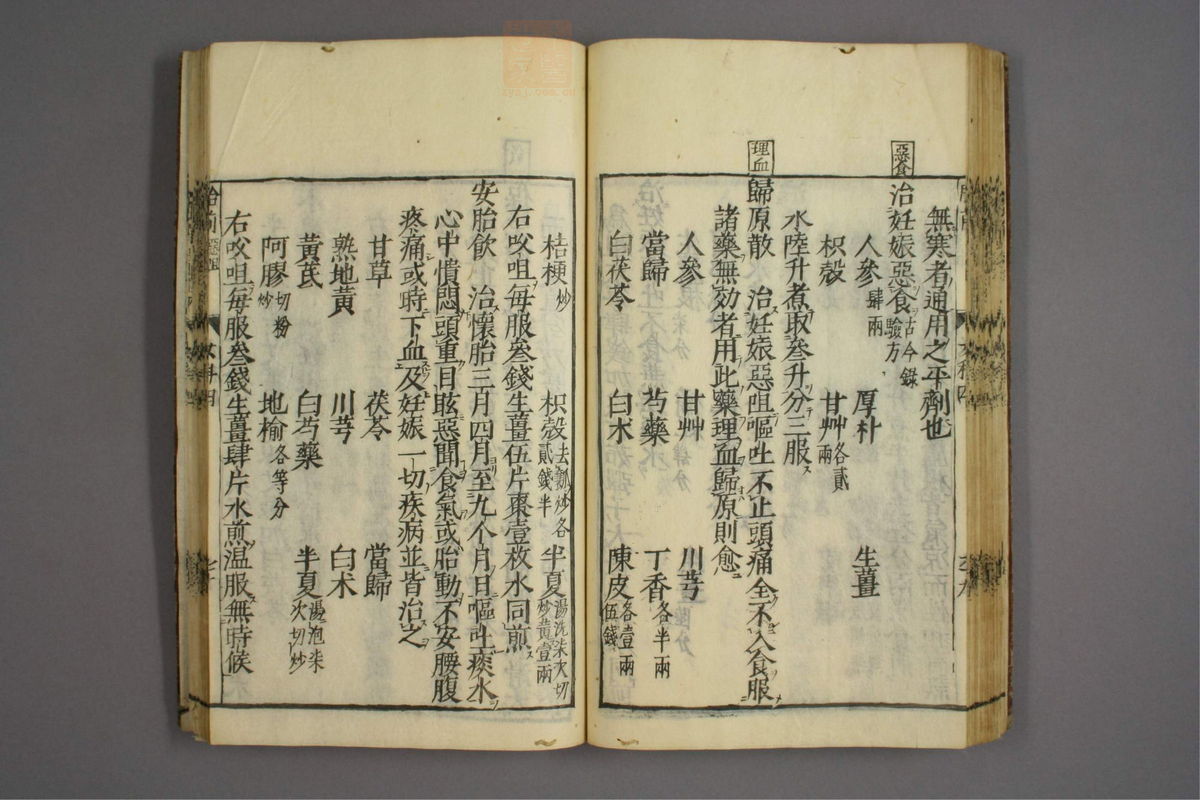 無寒者通用之平劑也
惡食
治妊娠惡食古今錄驗方
人參肆兩　厚朴　生薑
枳殼　甘艸各貳兩
水陸升煮取叄升分三服
理血
歸原散　治妊娠惡咀嘔吐不止頭痛全不入食服
諸藥無効者用此藥理血歸原則愈
人參　甘艸　川芎
當歸　芍藥　丁香各半兩
白茯苓　白朮　陳皮各壹兩伍錢
桔梗炒　枳殼去瓤炒各貳錢半　半夏湯洗柒次切炒黃壹兩
右㕮咀每服叄錢生薑伍片棗壹枚水同煎
安胎飲　治懷胎三月四月至九个月日嘔吐痰水
心中憒悶頭重目眩惡聞食氣或胎動不安腰腹
疼痛或時下血及妊娠一切疾病並皆治之
甘草　茯苓　當歸
熟地黃　川芎　白术
黃芪　白芍藥　半夏湯泡柒次切炒
阿膠切粉炒　地榆各等分
右㕮咀每服叄錢生薑肆片水煎温服無時候